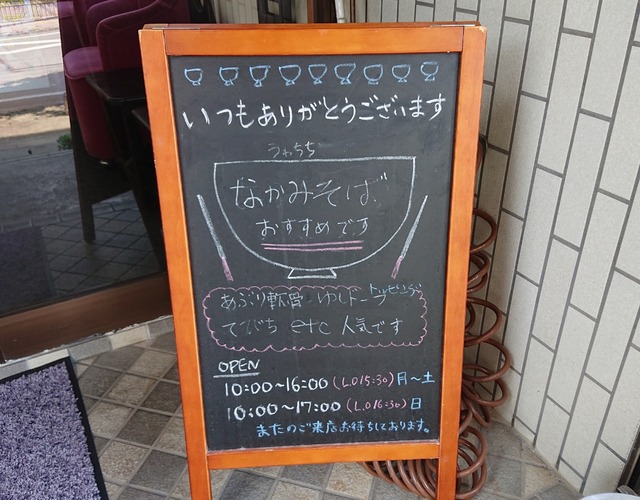 いつもありがとうございます
なかみそば
おすすめです
あぶり軟骨 ゆしどーふ トッピング
てびち etc 人気です
OPEN
10:00~16:00 (L.O15:30) 月~土
10:00~17:00 (L.O16:30) 日
またのご来店お待ちしております。